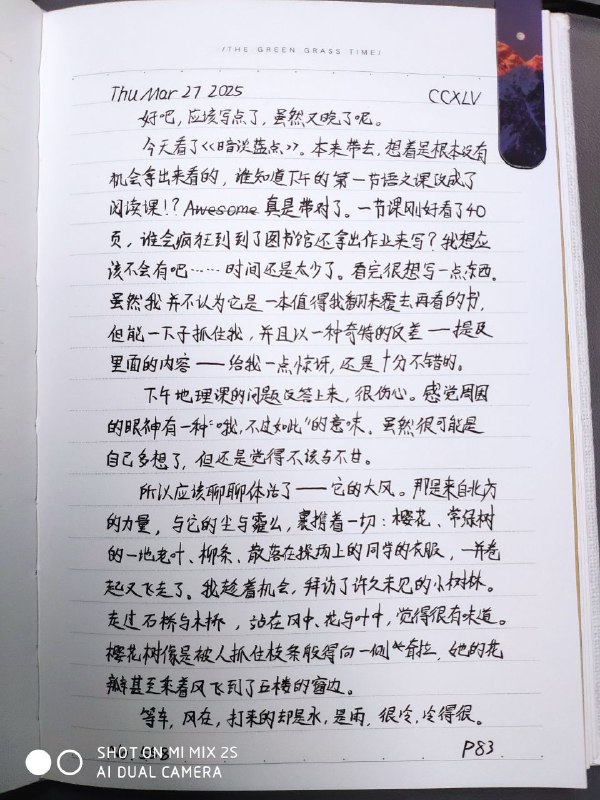 /THE GREEN GRASS TIME/
Thu Mar 27 2025 CCXLV
好吧，应该写点了，虽然又晚了呢。
今天看了《暗淡蓝点》。本来带去，想着是根本没有
机会拿出来看的，谁知道下午的第一节语文课改成了
阅读课！？Awesome 真是带对了。一节课刚好看了40
页，谁会疯狂到到了图书馆还拿出作业来写？我想应
该不会有吧……时间还是太少了。看完很想写一点东西。
虽然我并不认为它是一本值得我翻来覆去再看的书，
但能一下子抓住我，并且以一种奇特的反差——提及
里面的内容——给我一点惊讶，还是十分不错的。
下午地理课的问题没答上来，很伤心。感觉周围
的眼神有一种“哦，不过如此”的意味、虽然很可能是
自己多想了，但还是觉得不该与不甘。
所以应该聊聊体活了——它的大风。那是来自北方
的力量，与它的尘与霾么，裹携着一切：樱花、常绿树
的一地老叶、柳条、散落在操场上的同学的衣服，一并卷
起又飞走了。我趁着机会，拜访了许久未见的小树林。
走过石桥与木桥，站在风中、花与叶中，觉得很有味道。
樱花树像是被人抓住枝条般得向一侧耷拉，她的花
瓣甚至乘着风飞到了五楼的窗边。
等车，风在，打来的却是水，是雨，很冷，冷得很。
P83
SHOT ON MI MIX 2S
AI DUAL CAMERA